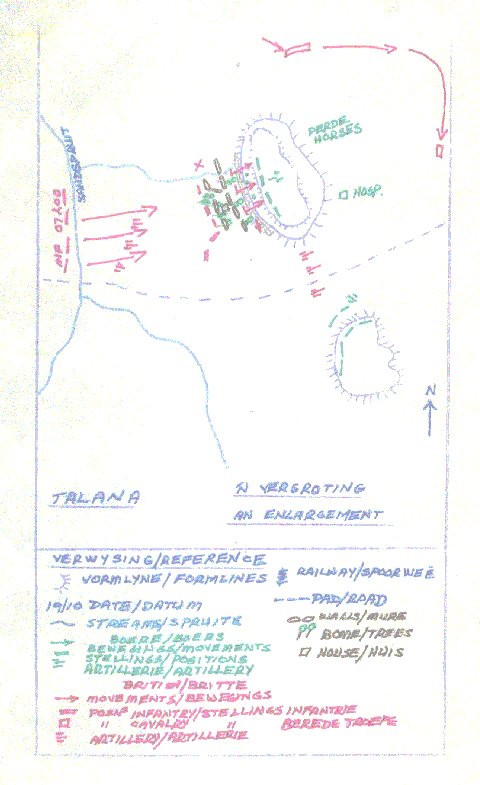 PERDE
HORSES
HOSP.
SANDSPRUIT
N
TALANA
'N VERGROTING
AN ENLARGEMENT
VERWYSING/REFERENCE
VORMLYNE/FORMLINES
RAILWAY/SPOORWEË
19/10 DATE/DATUM
PAD/ROAD
STREAMS/SPRUITE
WALLS/MURE
BOERE/BOERS
BOME/TREES
BEWEGINGS/MOVEMENTS
STELLINGS/POSITIONS
HOUSE/HUIS
ARTILLERIE/ARTILLERY
BRITISH/BRITTE
MOVEMENTS/BEWEGINGS
POSNS INFANTRY/STELLINGS INFANTRIE
" CAVALRY " BEREDE TROEPE
ARTILLERY/ARTILLERIE